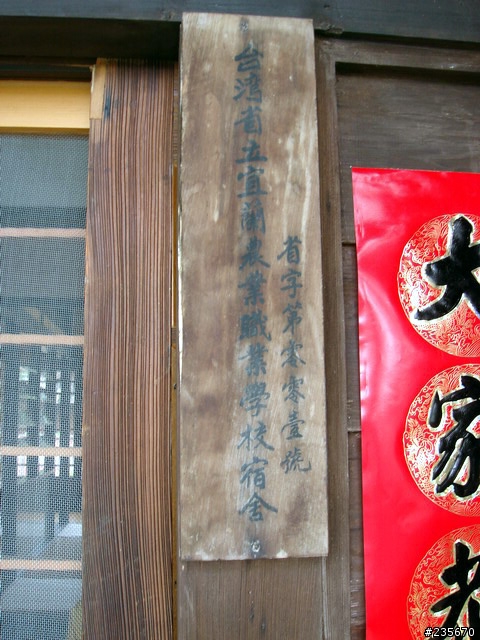 省字第零零壹號
台湾省立宜蘭農業職業學校宿舍
大家恭
#235670